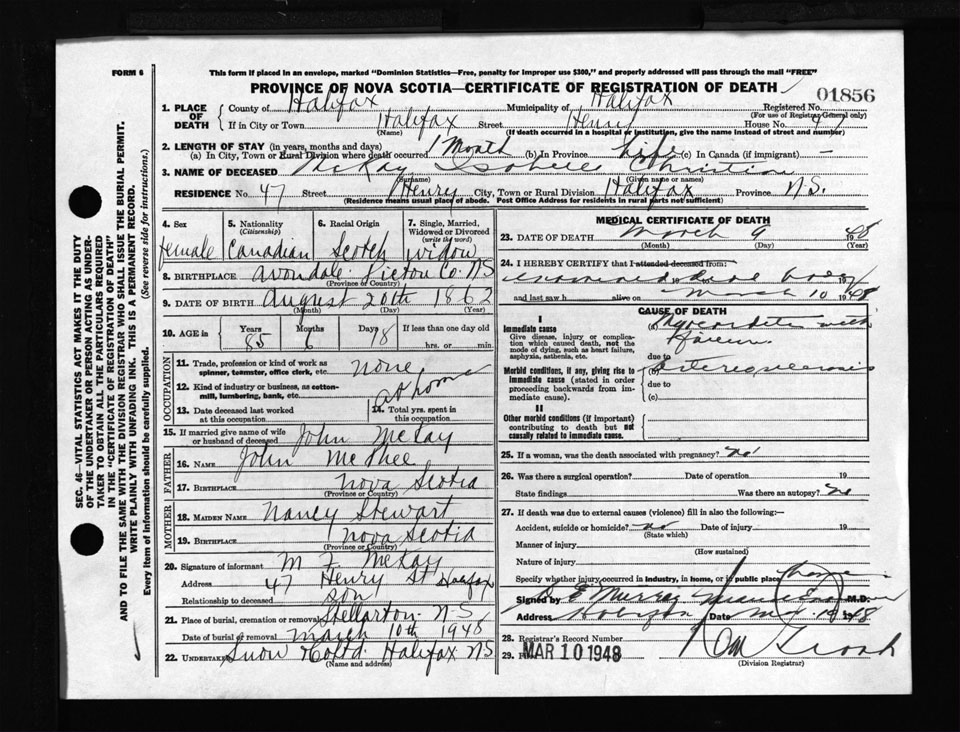 FORM 6
This form if placed in an envelope, marked "Dominion Statistics—Free, penalty for improper use $300," and properly addressed will pass through the mail "FREE"
PROVINCE OF NOVA SCOTIA—CERTIFICATE OF REGISTRATION OF DEATH
01856
1. PLACE OF DEATH
County of Halifax Municipality of Halifax Registered No.
(For use of Registrar General only)
If in City or Town Halifax Street Henry House No. 47
(Name) (If death occurred in a hospital or institution, give the name instead of street and number)
2. LENGTH OF STAY (in years, months and days)
(a) In City, Town or Rural Division where death occurred 1 Month (b) In Province Life (c) In Canada (if immigrant) —
3. NAME OF DECEASED McKay Isobelle Christian
(Surname) (Given name or names)
RESIDENCE No. 47 Street Henry City, Town or Rural Division Halifax Province N.S.
(Residence means usual place of abode. Post Office Address for residents in rural parts not sufficient)
4. Sex
female
5. Nationality
(Citizenship)
Canadian
6. Racial Origin
Scotch
7. Single, Married, Widowed or Divorced
(write the word)
Widow
8. BIRTHPLACE Avondale Pictou Co. N.S
(Province or Country)
9. DATE OF BIRTH August 20th 1862
(Month) (Day) (Year)
10. AGE in
Years 85
Months 6
Days 18
If less than one day old
hrs. or min.
OCCUPATION
11. Trade, profession or kind of work as spinner, teamster, office clerk, etc. none
12. Kind of industry or business, as cotton-mill, lumbering, bank, etc. at home
13. Date deceased last worked at this occupation
14. Total yrs. spent in this occupation
15. If married give name of wife or husband of deceased John McKay
FATHER
16. NAME John McPhee
17. BIRTHPLACE Nova Scotia
(Province or Country)
MOTHER
18. MAIDEN NAME Nancy Stewart
19. BIRTHPLACE Nova Scotia
(Province or Country)
20. Signature of informant M. F. McKay
Address 47 Henry St Halifax
Relationship to deceased son
21. Place of burial, cremation or removal Stellarton N-S
Date of burial or removal March 10th 1948
22. UNDERTAKER Snow & Co Ltd Halifax NS
(Name and address)
MEDICAL CERTIFICATE OF DEATH
23. DATE OF DEATH March 9 1948
(Month) (Day) (Year)
24. I HEREBY CERTIFY that I attended deceased from:
and last saw h alive on March 10 1948
CAUSE OF DEATH
I
Immediate cause
Give disease, injury or complication which caused death, not the mode of dying, such as heart failure, asphyxia, asthenia, etc.
(a) Myocarditis with
due to
Morbid conditions, if any, giving rise to immediate cause (stated in order proceeding backwards from immediate cause).
(b)
due to
(c)
II
Other morbid conditions (if important) contributing to death but not causally related to immediate cause.
25. If a woman, was the death associated with pregnancy? no
26. Was there a surgical operation? Date of operation 19
State findings Was there an autopsy? no
27. If death was due to external causes (violence) fill in also the following:—
Accident, suicide or homicide? no Date of injury 19
(State which)
Manner of injury
(How sustained)
Nature of injury
Specify whether injury occurred in industry, in home, or in public place
Signed by E. Murray M.D.
Address Halifax Date 1948
28. Registrar's Record Number
29. MAR 10 1948
(Division Registrar)
SEC. 46—VITAL STATISTICS ACT MAKES IT THE DUTY OF THE UNDERTAKER OR PERSON ACTING AS UNDERTAKER TO OBTAIN ALL THE PARTICULARS REQUIRED IN THE "CERTIFICATE OF REGISTRATION OF DEATH" AND TO FILE THE SAME WITH THE DIVISION REGISTRAR WHO SHALL ISSUE THE BURIAL PERMIT.
WRITE PLAINLY WITH UNFADING INK. THIS IS A PERMANENT RECORD.
Every item of information should be carefully supplied. (See reverse side for instructions.)